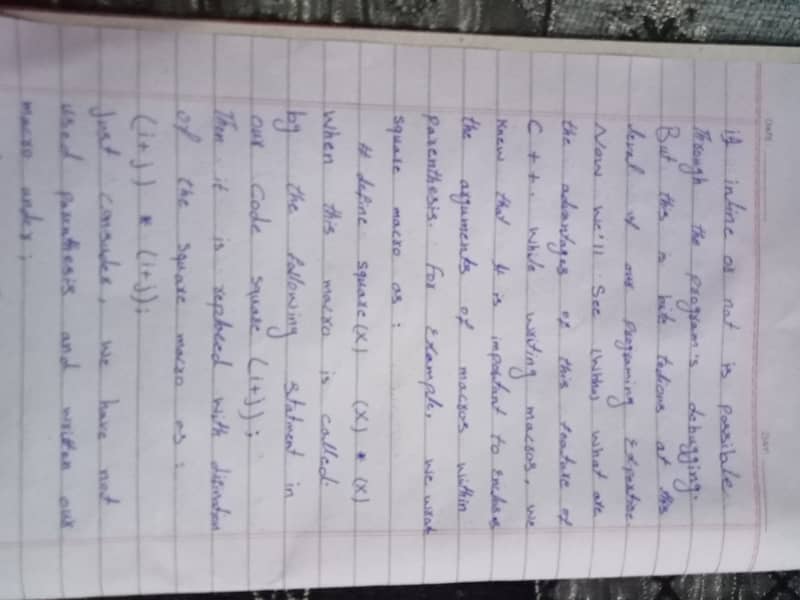 if inline or not is possible
Through the program's debugging.
But this is bit tedious at this
level of our Programing Expertise
Now we'll See what are
the advantages of this feature of
C++. While writing macros, we
Knew that it is important to Enclose
the arguments of macros within
parenthesis. For Example, we wrote
square macro as :
# define square(x) (x) * (x)
When this macro is called.
by the following Statment in
our Code square (i+j);
Then it is replaced with
of the square macro as :
(i+j) * (i+j);
Just consider, we have not
used parenthesis and written our
macro under;